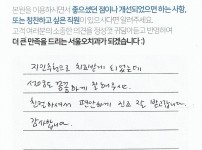 본원을 이용하시면서 좋으셨던 점이나 개선되었으면 하는 사항,
또는 칭찬하고 싶은 직원이 있으시다면 알려주세요.
고객 여러분의 소중한 의견을 항상 귀담아듣고 반영하여
더 큰 만족을 드리는 서울오치과가 되겠습니다 :)
지인추천으로 치료받게 되었는데
세심하고 꼼꼼하게 잘 해주셔서
친절하셔서 편안하게 진료 잘 받고갑니다
감사합니다.